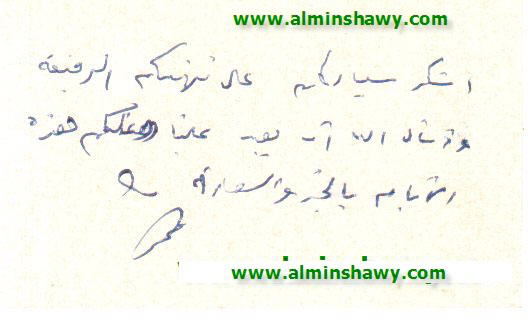 www.alminshawy.com
اشكر سيادتكم على تهنئتكم الرقيقة
ونسأل الله أن يعيد علينا وعليكم هذه
الأيام بالخير والسعادة
www.alminshawy.com